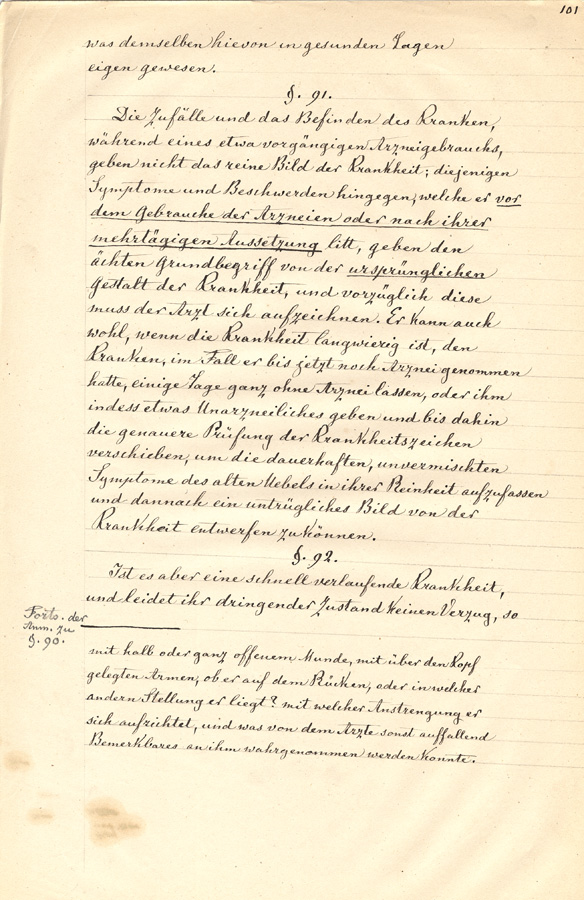 101
was demselben hievon in gesunden Tagen
eigen gewesen.
§. 91.
Die Zufälle und das Befinden des Kranken,
während eines etwa vorgängigen Arzneigebrauchs,
geben nicht das reine Bild der Krankheit; diejenigen
Symptome und Beschwerden hingegen, welche er vor
dem Gebrauche der Arzneien oder nach ihrer
mehrtägigen Aussetzung litt, geben den
ächten Grundbegriff von der ursprünglichen
Gestalt der Krankheit, und vorzüglich diese
muss der Arzt sich aufzeichnen. Er kann auch
wohl, wenn die Krankheit langwierig ist, den
Kranken, im Fall er bis jetzt noch Arznei genommen
hatte, einige Tage ganz ohne Arznei lassen, oder ihm
indess etwas Unarzneiliches geben und bis dahin
die genauere Prüfung der Krankheitszeichen
verschieben, um die dauerhaften, unvermischten
Symptome des alten Uebels in ihrer Reinheit aufzufassen
und dannach ein untrügliches Bild von der
Krankheit entwerfen zu können.
§. 92.
Ist es aber eine schnell verlaufende Krankheit,
und leidet ihr dringender Zustand keinen Verzug, so
Forts. der
Anm. zu
§. 90.
mit halb oder ganz offenem Munde, mit über den Kopf
gelegten Armen, ob er auf dem Rücken, oder in welcher
andern Stellung er liegt? mit welcher Anstrengung er
sich aufrichtet, und was von dem Arzte sonst auffallend
Bemerkbares an ihm wahrgenommen werden konnte.